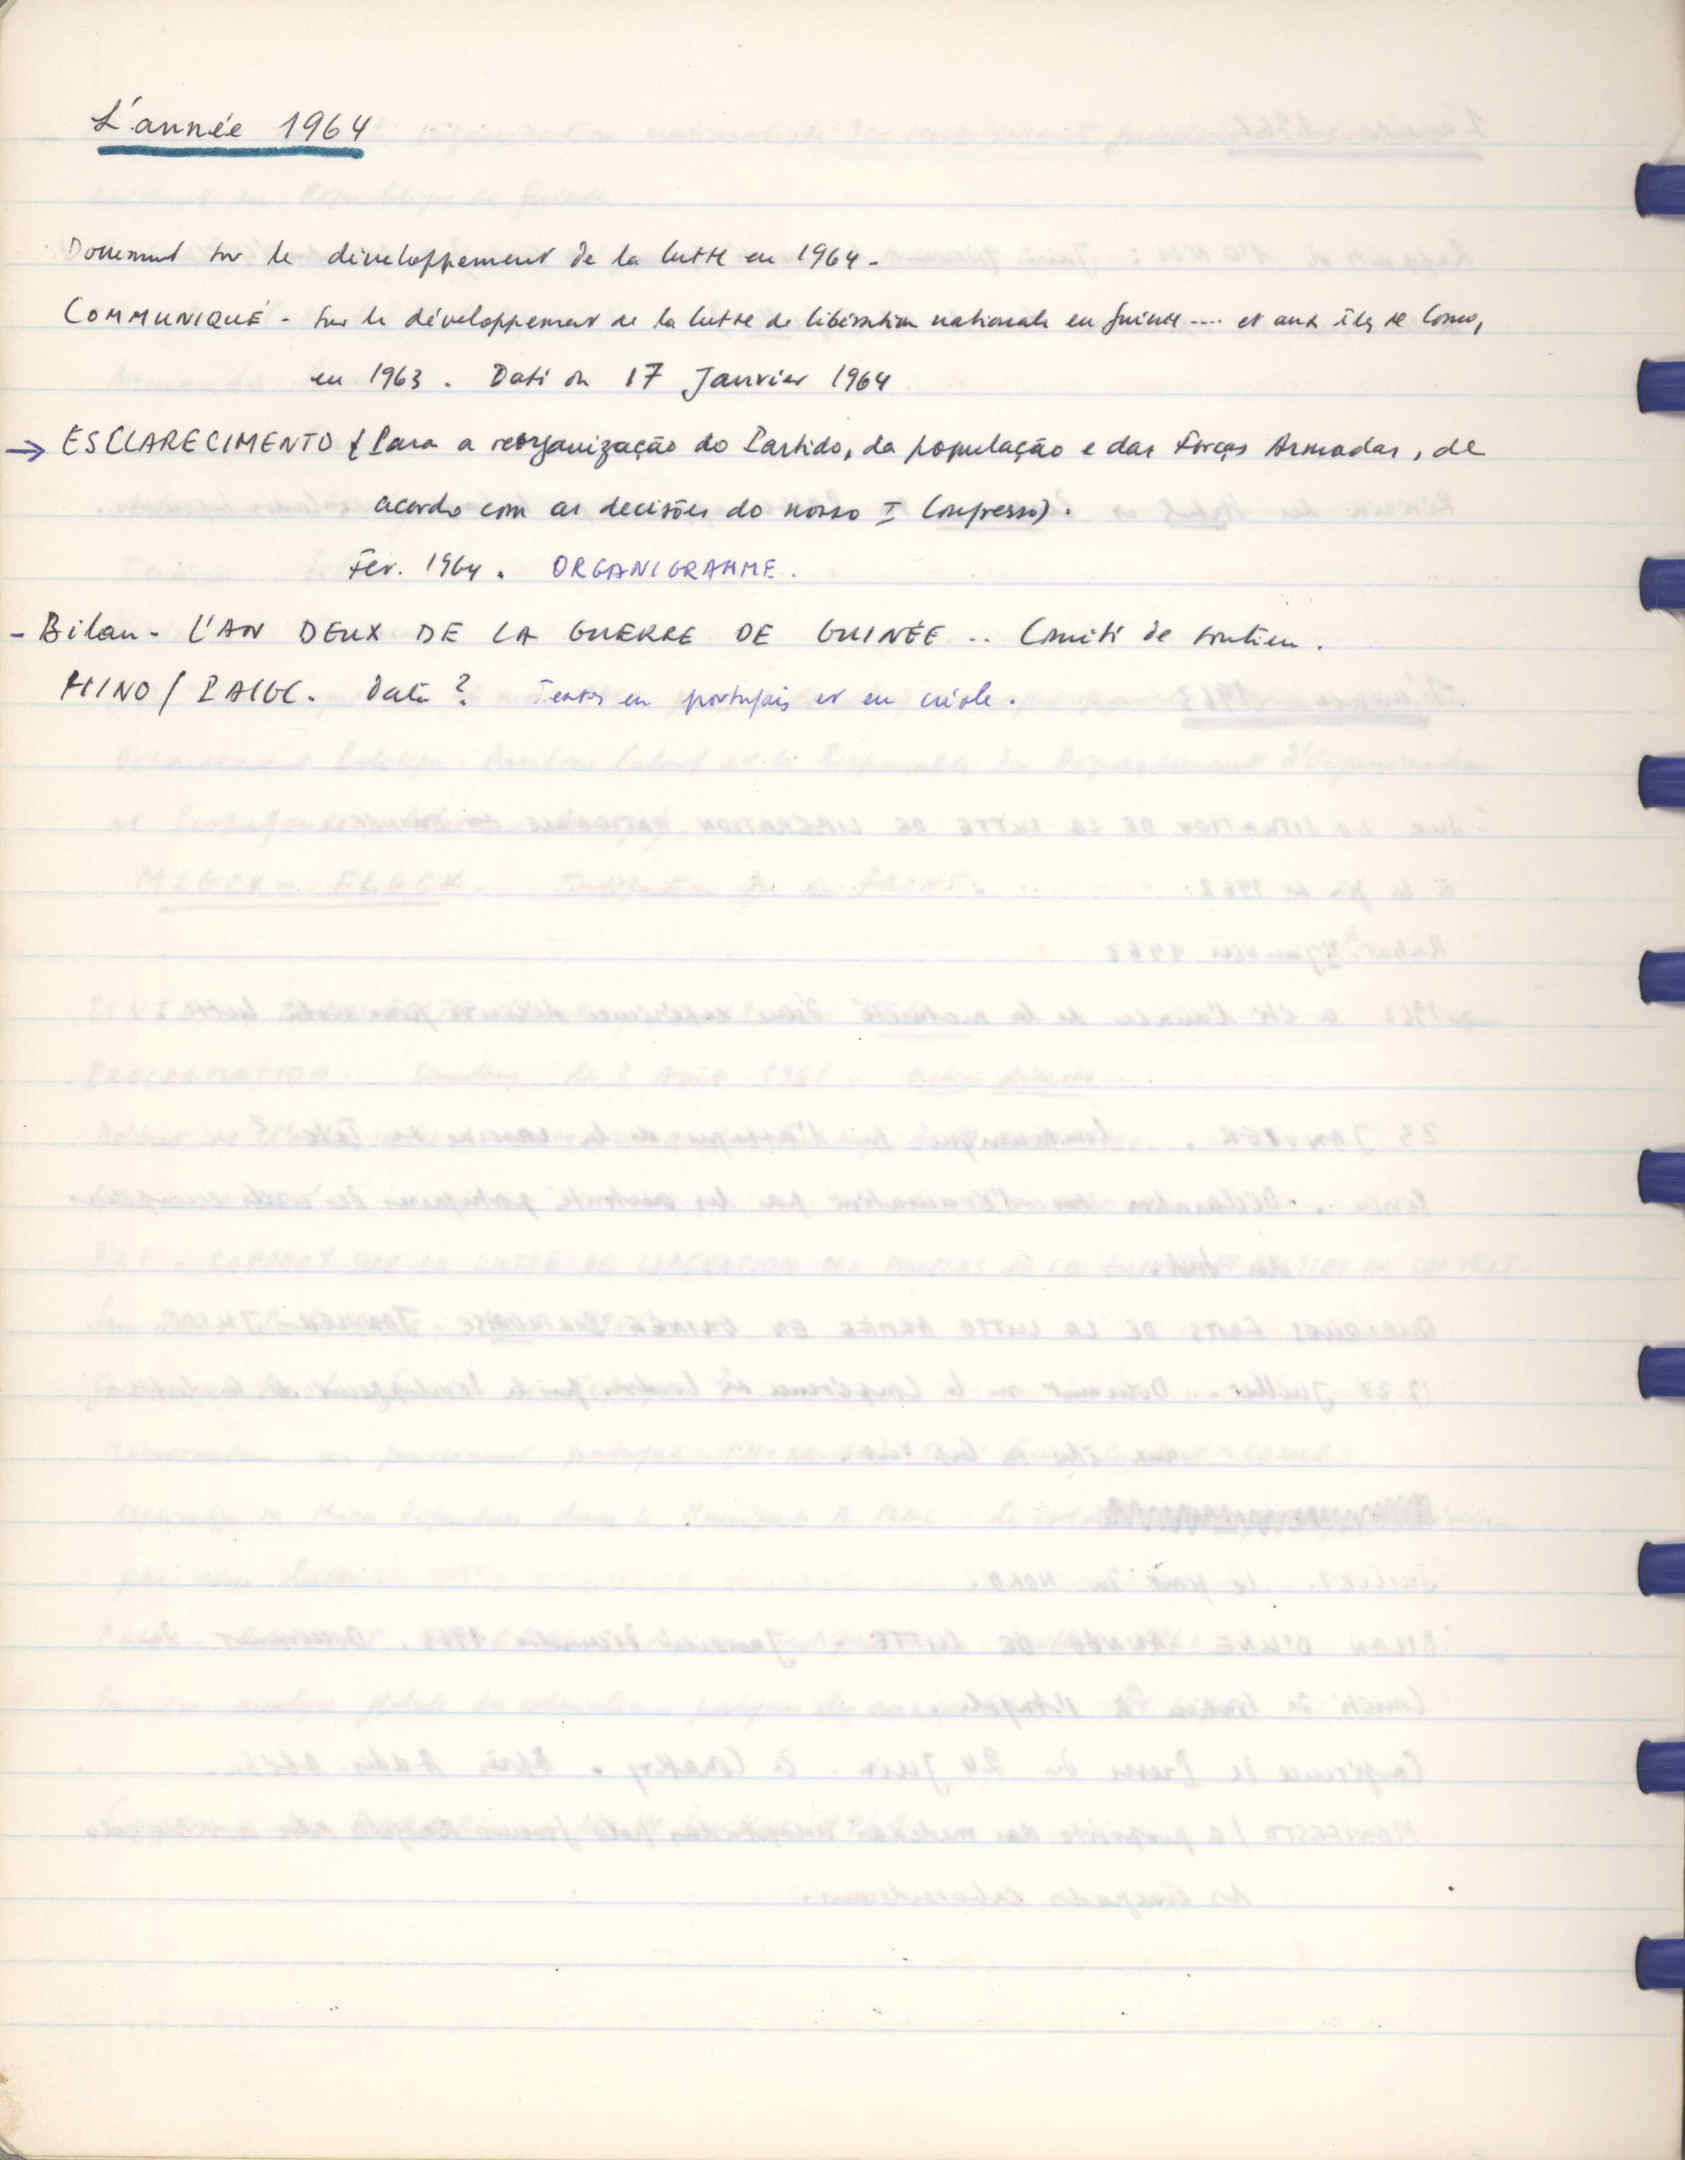 L'année 1964
Document sur le développement de la lutte en 1964.
COMMUNIQUÉ - Sur le développement de la lutte de libération nationale en Guinée .... et aux îles de
en 1963. Daté du 17 Janvier 1964
→ ESCLARECIMENTO (Para a reorganização do Partido, da população e das Forças Armadas, de
acordo com as decisões do nosso I Congresso).
Fev. 1964. ORGANIGRAMME.
- Bilan - L'AN DEUX DE LA GUERRE DE GUINÉE .. Comité de soutien.
HINO / PAIGC. Date? Textes en portugais et en créole.